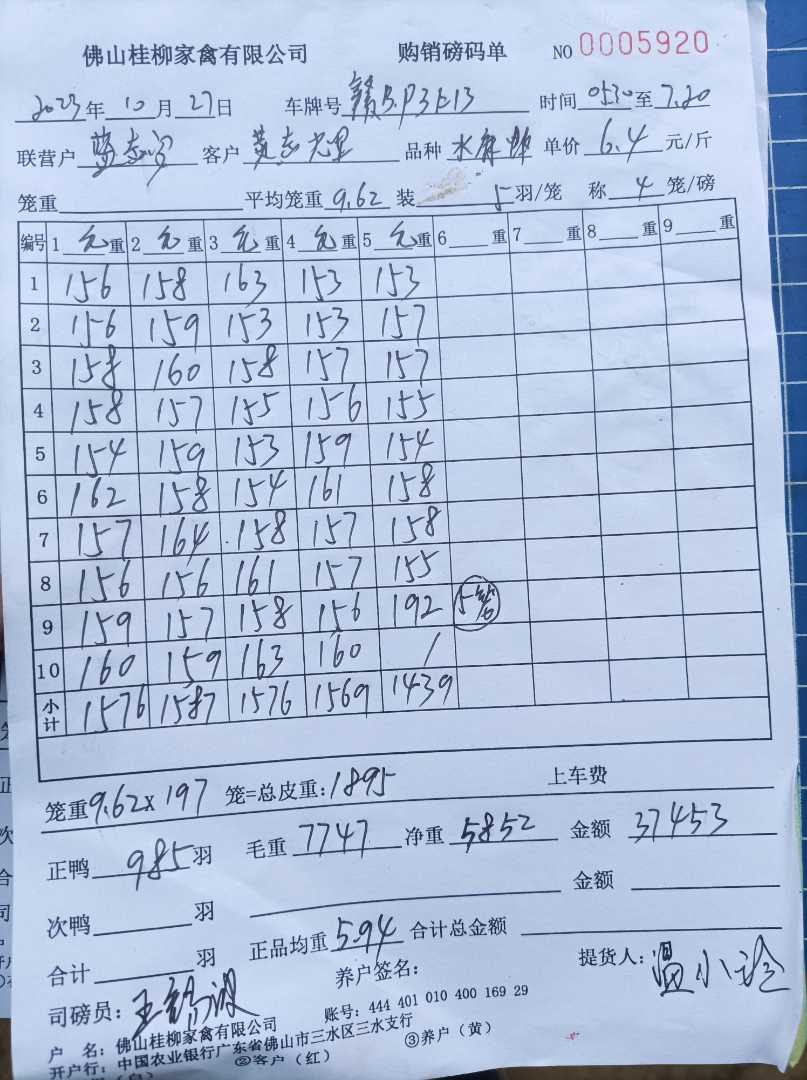 佛山桂柳家禽有限公司 购销磅码单 NO 0005920
2023年10月27日 车牌号 赣B.P3E13 时间 0530至7.20
联营户 客户 黄志 品种 水麻鸭 单价 6.4 元/斤
笼重 平均笼重 9.62 装 5 羽/笼 称 4 笼/磅
编号 1 元 重 2 元 重 3 元 重 4 元 重 5 元 重 6 重 7 重 8 重 9 重
1 156 158 163 153 153
2 156 159 153 153 157
3 158 160 158 157 157
4 158 157 155 156 155
5 154 159 153 159 154
6 162 158 154 161 158
7 157 164 158 157 158
8 156 156 161 157 155
9 159 157 158 156 192 5笼
10 160 159 163 160 /
小计 1576 1587 1576 1569 1439
笼重 9.62 x 197 笼=总皮重: 1895 上车费
正鸭 985 羽 毛重 7747 净重 5852 金额 37453
次鸭 羽 金额
合计 羽 正品均重 5.94 合计总金额
司磅员: 王 养户签名: 提货人: 温小
户 名: 佛山桂柳家禽有限公司 账号: 444 401 010 400 169 29
开户行: 中国农业银行广东省佛山市三水区三水支行
②客户（红） ③养户（黄）